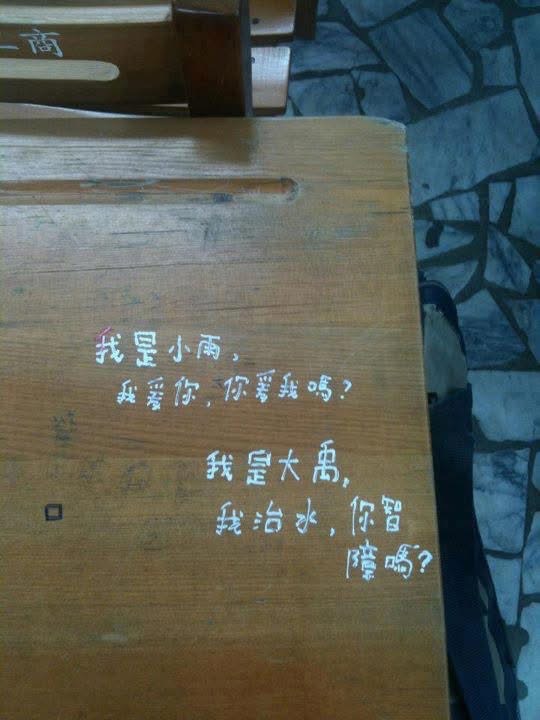 二商
我是小雨，
我爱你，你爱我嗎？
我是大禹，
我治水，你智
障嗎？